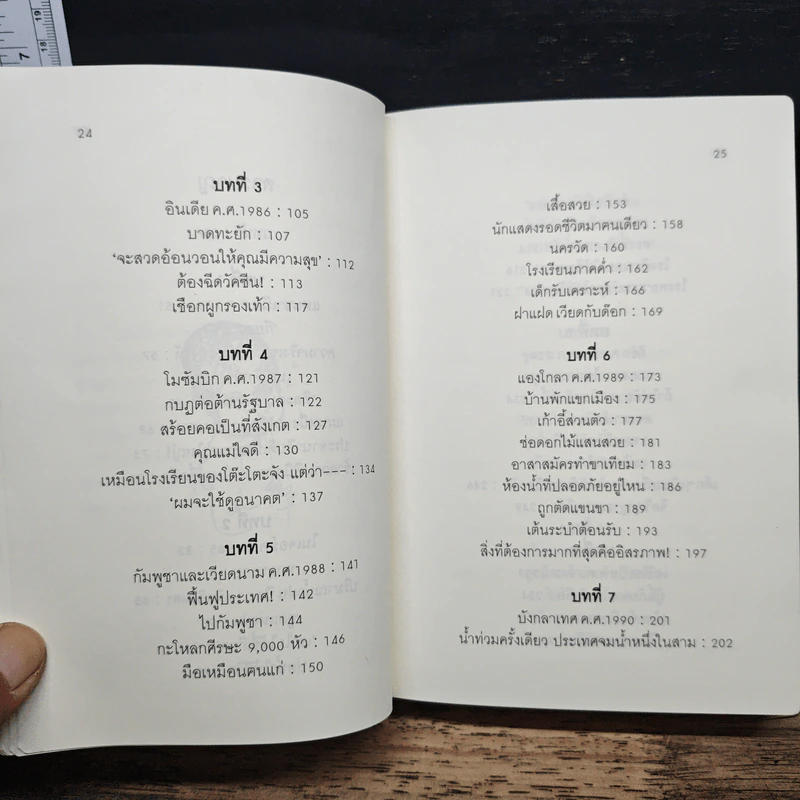 7
18
19
24
บทที่ 3
อินเดีย ค.ศ.1986 : 105
บาดทะยัก : 107
‘จะสวดอ้อนวอนให้คุณมีความสุข’ : 112
ต้องฉีดวัคซีน! : 113
เชือกผูกรองเท้า : 117
บทที่ 4
โมซัมบิก ค.ศ.1987 : 121
กบฏต่อต้านรัฐบาล : 122
สร้อยคอเป็นที่สังเกต : 127
คุณแม่ใจดี : 130
เหมือนโรงเรียนของโต๊ะโตะจัง แต่ว่า--- : 134
‘ผมจะใช้ดูอนาคต’ : 137
บทที่ 5
กัมพูชาและเวียดนาม ค.ศ.1988 : 141
ฟื้นฟูประเทศ! : 142
ไปกัมพูชา : 144
กะโหลกศีรษะ 9,000 หัว : 146
มือเหมือนคนแก่ : 150
25
เสื้อสวย : 153
นักแสดงรอดชีวิตมาคนเดียว : 158
นครวัด : 160
โรงเรียนภาคค่ำ : 162
เด็กรับเคราะห์ : 166
ฝาแฝด เวียดกับด๊อก : 169
บทที่ 6
แองโกลา ค.ศ.1989 : 173
บ้านพักแขกเมือง : 175
เก้าอี้ส่วนตัว : 177
ช่อดอกไม้แสนสวย : 181
อาสาสมัครทำขาเทียม : 183
ห้องน้ำที่ปลอดภัยอยู่ไหน : 186
ถูกตัดแขนขา : 189
เต้นระบำต้อนรับ : 193
สิ่งที่ต้องการมากที่สุดคืออิสรภาพ! : 197
บทที่ 7
บังกลาเทศ ค.ศ.1990 : 201
น้ำท่วมครั้งเดียว ประเทศจมน้ำหนึ่งในสาม : 202